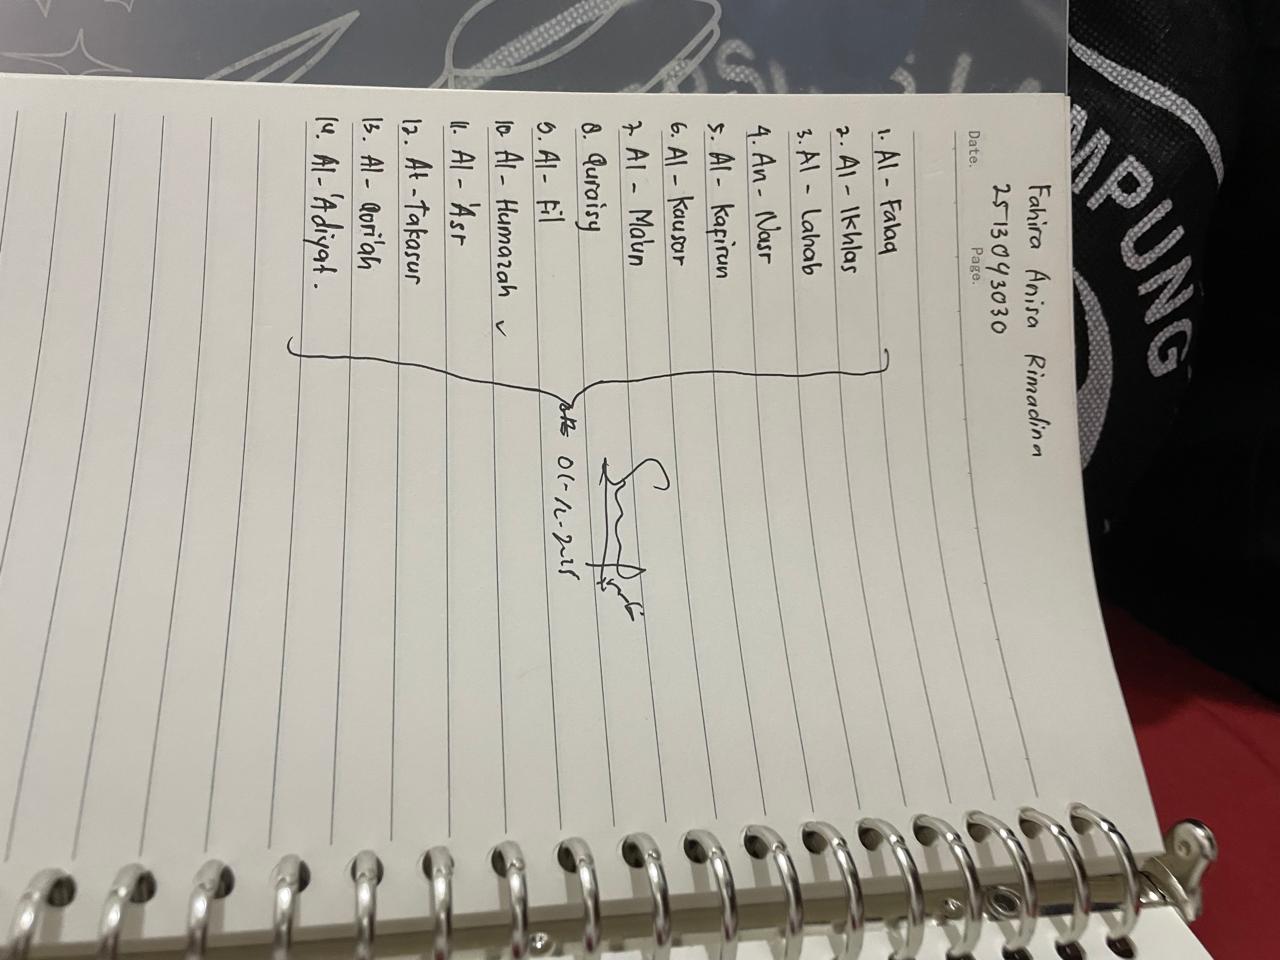 Fahira Anisa Rimadina
2513043030
Date.
Page.
1. Al - Falaq
2. Al - Ikhlas
3. Al - Lahab
4. An - Nasr
5. Al - Kafirun
6. Al - Kausar
7. Al - Ma'un
8. Quraisy
9. Al - Fil
10. Al - Humazah ✓
11. Al - 'Asr
12. At - Takasur
13. Al - Qori'ah
14. Al - 'Adiyat.
01-12-2025
AMPUNG